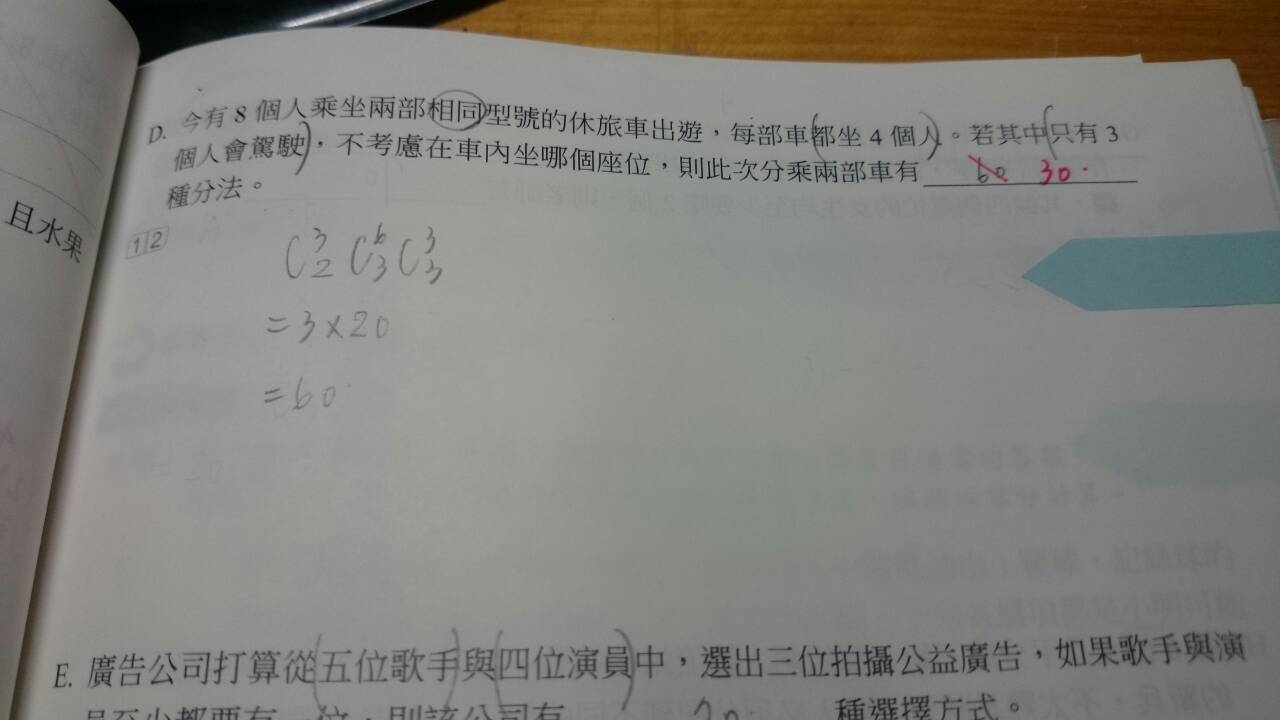 D. 今有 8 個人乘坐兩部相同型號的休旅車出遊，每部車都坐 4 個人。若其中只有 3
個人會駕駛，不考慮在車內坐哪個座位，則此次分乘兩部車有 60 30.
種分法。
且水果
12
C³₂ C⁶₃ C³₃
=3×20
=60
E. 廣告公司打算從五位歌手與四位演員中，選出三位拍攝公益廣告，如果歌手與演
員至少都要有一位，則該公司有 種選擇方式。